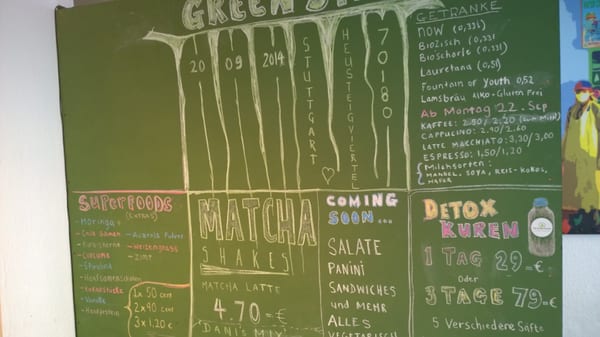 GREEN
20
09
2014
STUTTGART
HEUSTEIGVIERTEL
70180
GETRÄNKE
NOW (0,33l)
BioZisch (0,33l
Bio'Schorle (0,33l)
Lauretana (0,5l)
Fountain of Youth 0,52
Lamsbräu Alko + Gluten Frei
Ab Montag 22. Sep
KAFFEE: 2.90/ 2.20
CAPPUCINO: 2.90/2.60
LATTE MACCHIATO: 3,30/3,00
ESPRESSO: 1,50/1,20
Milchsorten:
MANDEL, SOYA, REIS-KOKOS,
HAFER
SUPERFOODS
(EXTRAS)
- Moringa
- Chia Sämen
- Kürbiskerne
- Curcuma
- Spirulina
- Hanfsamenschalen
- Kakaonibs
- Vanille
- Hanfprotein
- Acerola Pulver
- Weizengrass
- Zimt
1x 50 cent
2x 90 cent
3x 1.20 €
MATCHA
SHAKES
MATCHA LATTE
4.70 €
DANI'S MIX
COMING
SOON...
SALATE
PANINI
SANDWICHES
und MEHR
ALLES
VEGETARISCH
DETOX
KUREN
1 TAG 29.-€
Oder
3 TAGE 79.-€
5 Verschiedene Säfte